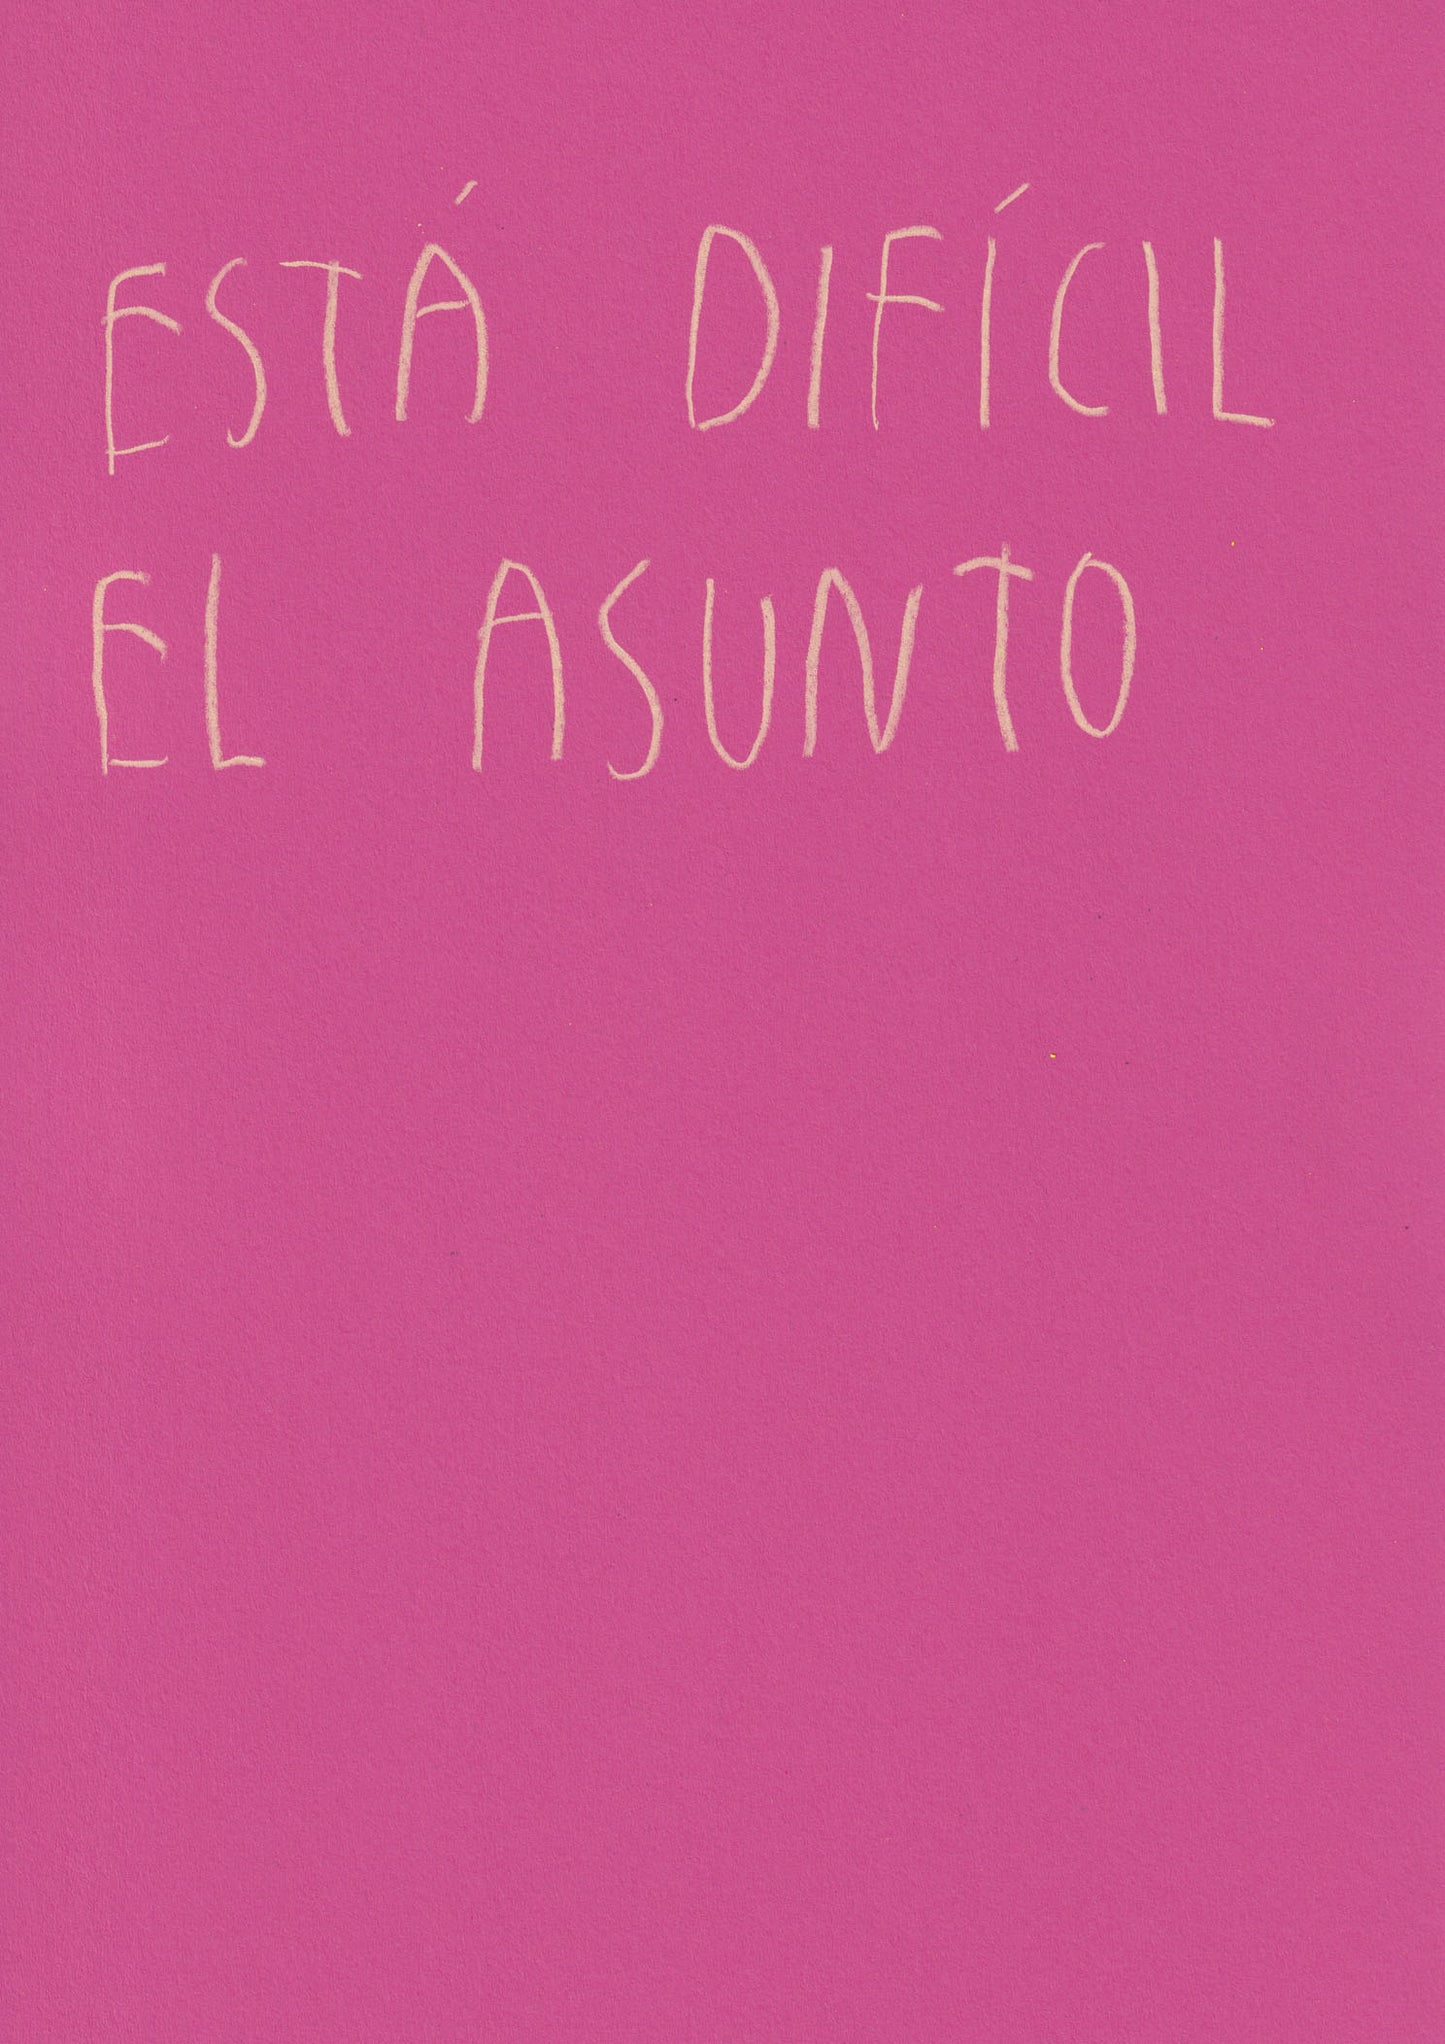 ESTÁ DIFÍCIL
EL ASUNTO